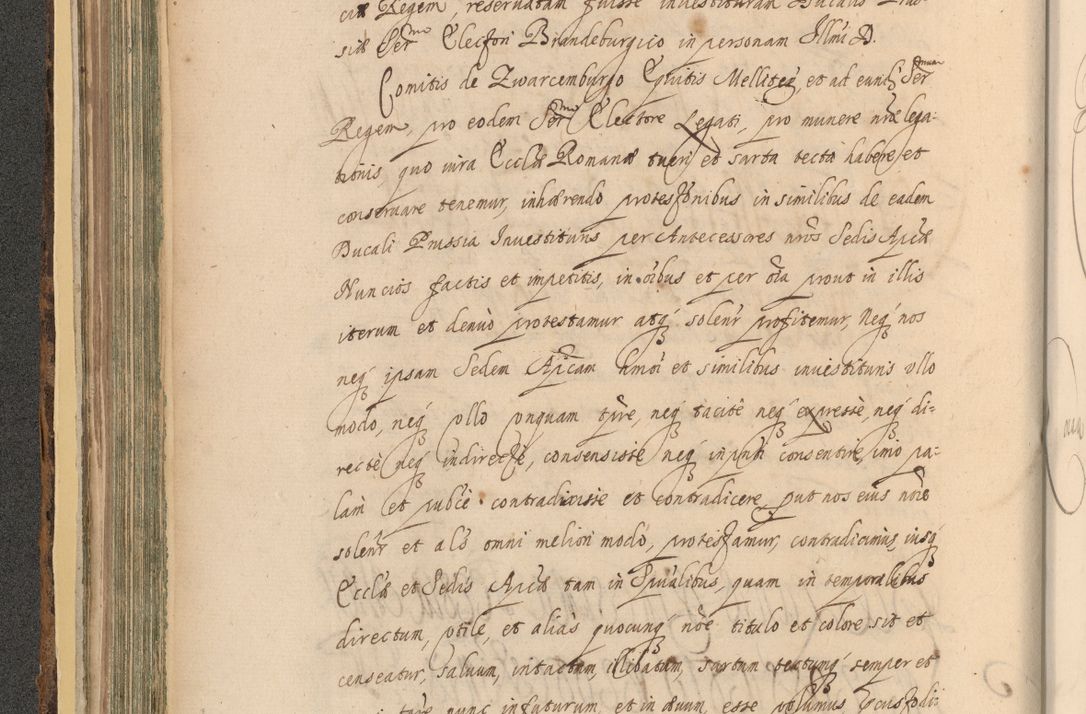 ciæ Regem, reservatam fuisse investituram Ducalis Prus-
siæ Sermo Electori Brandeburgico in personam Illmi D.
Comitis de Zwarcemburgo Equitis Meliteñ, et ad eundẽ Sermum
Regem, pro eodem Sermo Electore Legati, pro munere nræ lega-
tionis, quo iura Ecclæ Romanæ tueri et sarta tecta habere et
conservare tenemur, inhærendo protestõnibus in similibus de eadem
Ducali Prussia Investituris per Antecessores nros Sedis Apcæ
Nuncios factis et impetitis, in oibus et per oia prout in illis
iterum et denuò protestamur atq; solenr profitemur, Neq; nos
neq; ipsam Sedem Apcam hmoi et similibus investituris ullo
modo, neq; ullo unquam tpre, neq; tacitè neq; expressè, neq; di-
rectè neq; indirectè, consensisse neq; in pnti consentire, imò pa-
lam et pubcè contradixisse et contradicere, put nos eius noie
solenr et alò omni meliori modo, protestamur, contradicimus, iusq;
Ecclæ et Sedis Apcæ tam in Spũalibus, quam in temporalibus
directum, utile, et aliàs quocunq; noe titulo et colore sit et
censeatur, salvum, intactum, illibatum, sartum tectumq; semper et
nunc in futurum, et in ævum esse volumus et custodi-